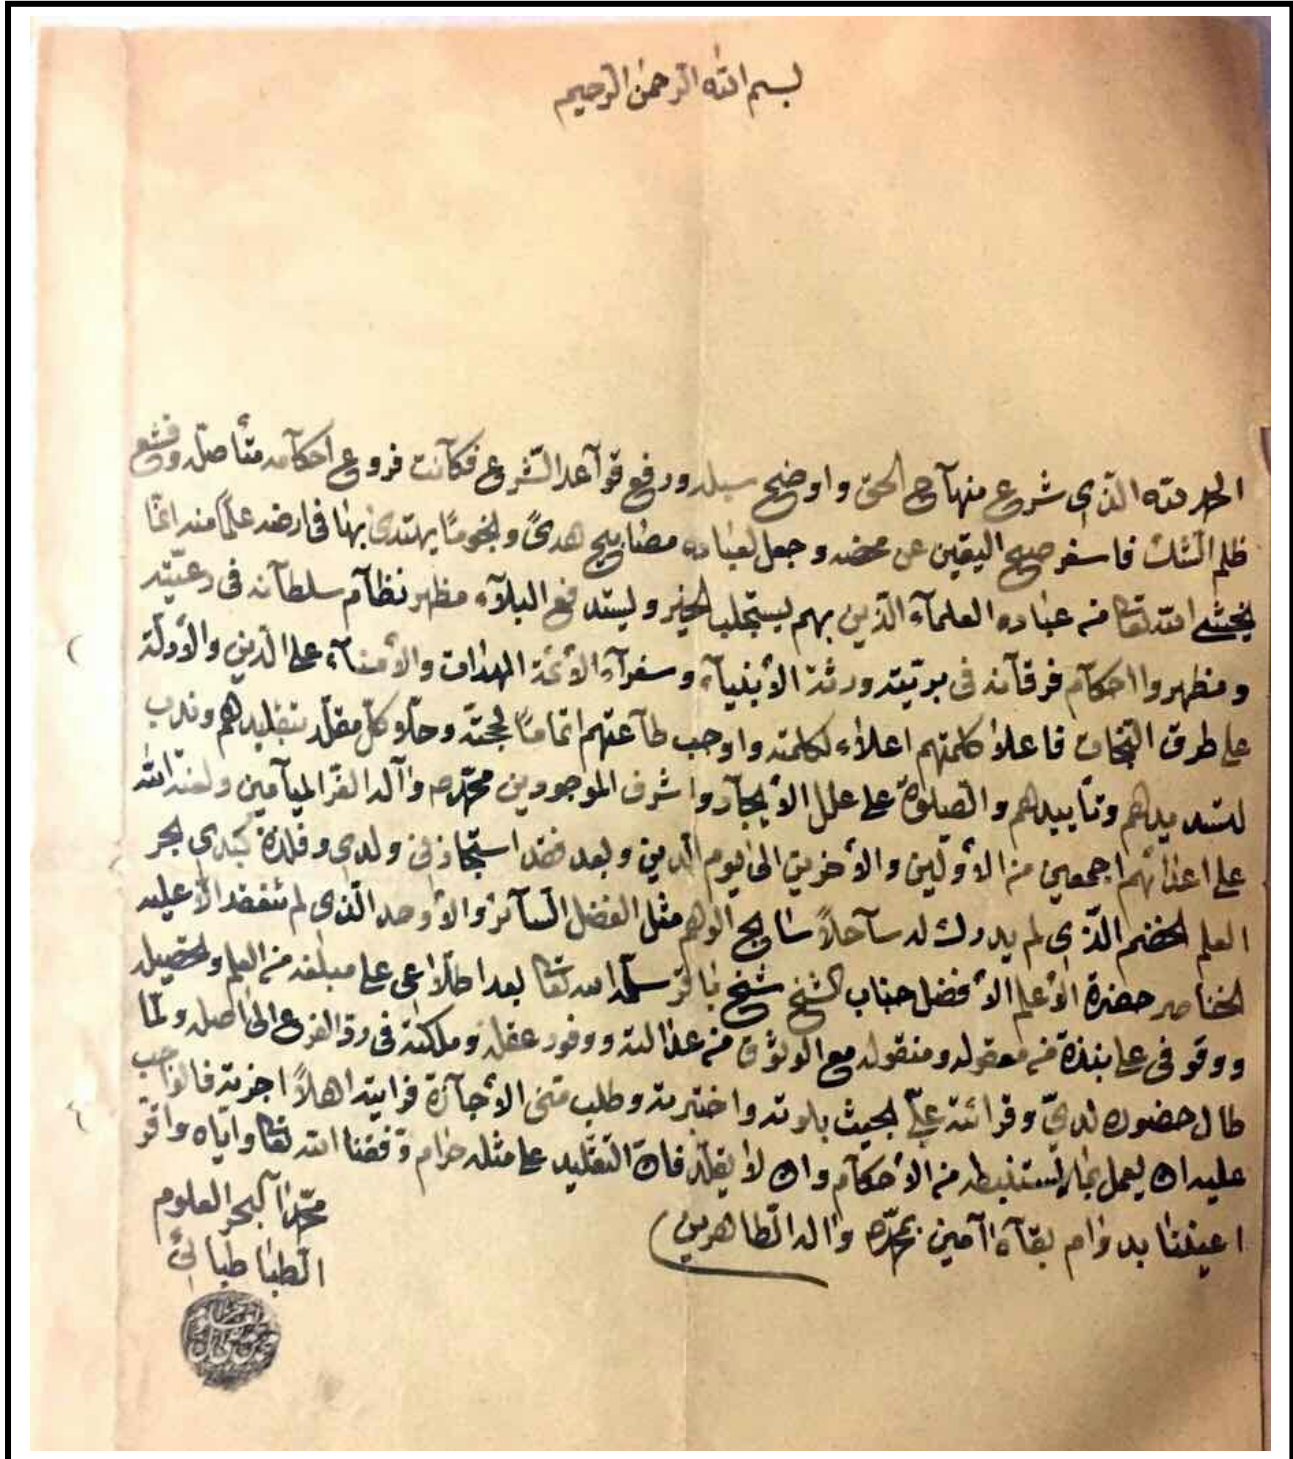 بسم الله الرحمن الرحيم
الحمد لله الذي شرع منهآج الحق و اوضح سبله ورفع قوآعد الشرع فكآنت فروع احكآمه متأصله وقشع
ظلم الشك فاسفر صبح اليقين عن محضه وجعل لعباده مصابيح هدىً ونجومًا يهتدى بها في ارضه علمًا منه انما
يخشى الله تعالى من عباده العلمآء الذين بهم يستجلب الخير ويستدفع البلآء مظهر نظآم سلطآنه في رعيته
ومظهروا احكآم فرقآنه في بريته ورثة الأنبيآء وسفرآء الأئمة الهداة والأمنآء على الدين والأدلة
على طرق النجات فاعلا كلمتهم اعلاء لكلمته واوجب طآعتهم اتمامًا لحجته وحلّو كل مقلد بتقليدهم وندب
لتسديدهم وتأييدهم والصلوة على علل الأيجآد واشرف الموجودين محمد ص وآله الغر الميآمين ولعنة الله
على اعدائهم اجمعين من الأولين والأخرين الى يوم الدين وبعد فقد استجازني ولدي وفلذة كبدي بحر
العلم الخضم الذي لم يدرك له سآحلاً سابح الوهم مثل الفضل السآئر والأوحد الذي لم تنعقد الا عليه
الخناصر حضرة الأعلم الأفضل جناب الشيخ شيخ باقر سلمه الله تعالى بعد اطلاعي على مبلغه من العلم وتحصيله
ووقوفي على نبذة من معقوله ومنقوله مع الوثوق من عدالته ووفور عقله وملكته في رد الفرع الى اصله ولما
طال حضوره لديّ وقرائته عليّ بحيث بلوته واختبرته وطلب مني الأجآزة فرايته اهلاً اجزته فالواجب
عليه ان يعمل بما يستنبطه من الأحكآم وان لا يقلد فان التقليد على مثله حرام وفقنا الله تعالى واياه واقر
اعيننا بدوام بقآه آمين بمحمد ص وآله الطاهرين
محمد آل بحر العلوم
الطباطبائي